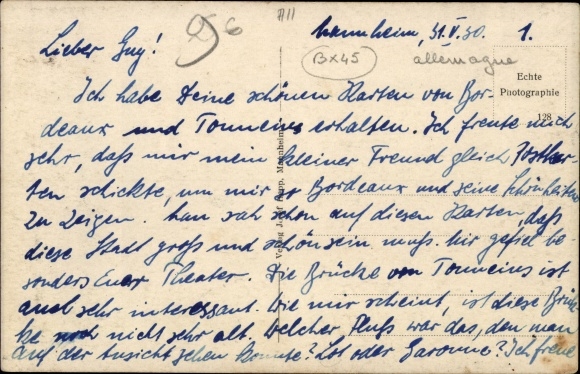 Mannheim, 31.V.30. 1.
Lieber Guy!
26
A11
B x 45
allemagne
Echte
Photographie
128
Ich habe Deine schönen Karten von Bor-
deaux und Tonneins erhalten. Ich freute mich
sehr, daß mir mein kleiner Freund gleich Postkar
ten schickte, um mir Bordeaux und seine Schönheiten
zu zeigen. Man sah schon auf diesen Karten, daß
diese Stadt groß und schön sein muß. Mir gefiel be-
sonders Euer Theater. Die Brücke von Tonneins ist
auch sehr interessant. Wie mir scheint, ist diese Brüc
ke noch nicht sehr alt. Welcher Fluß war das, den man
auf der Ansicht sehen konnte? Lot oder Garonne? Ich freue
Verlag Mannheim